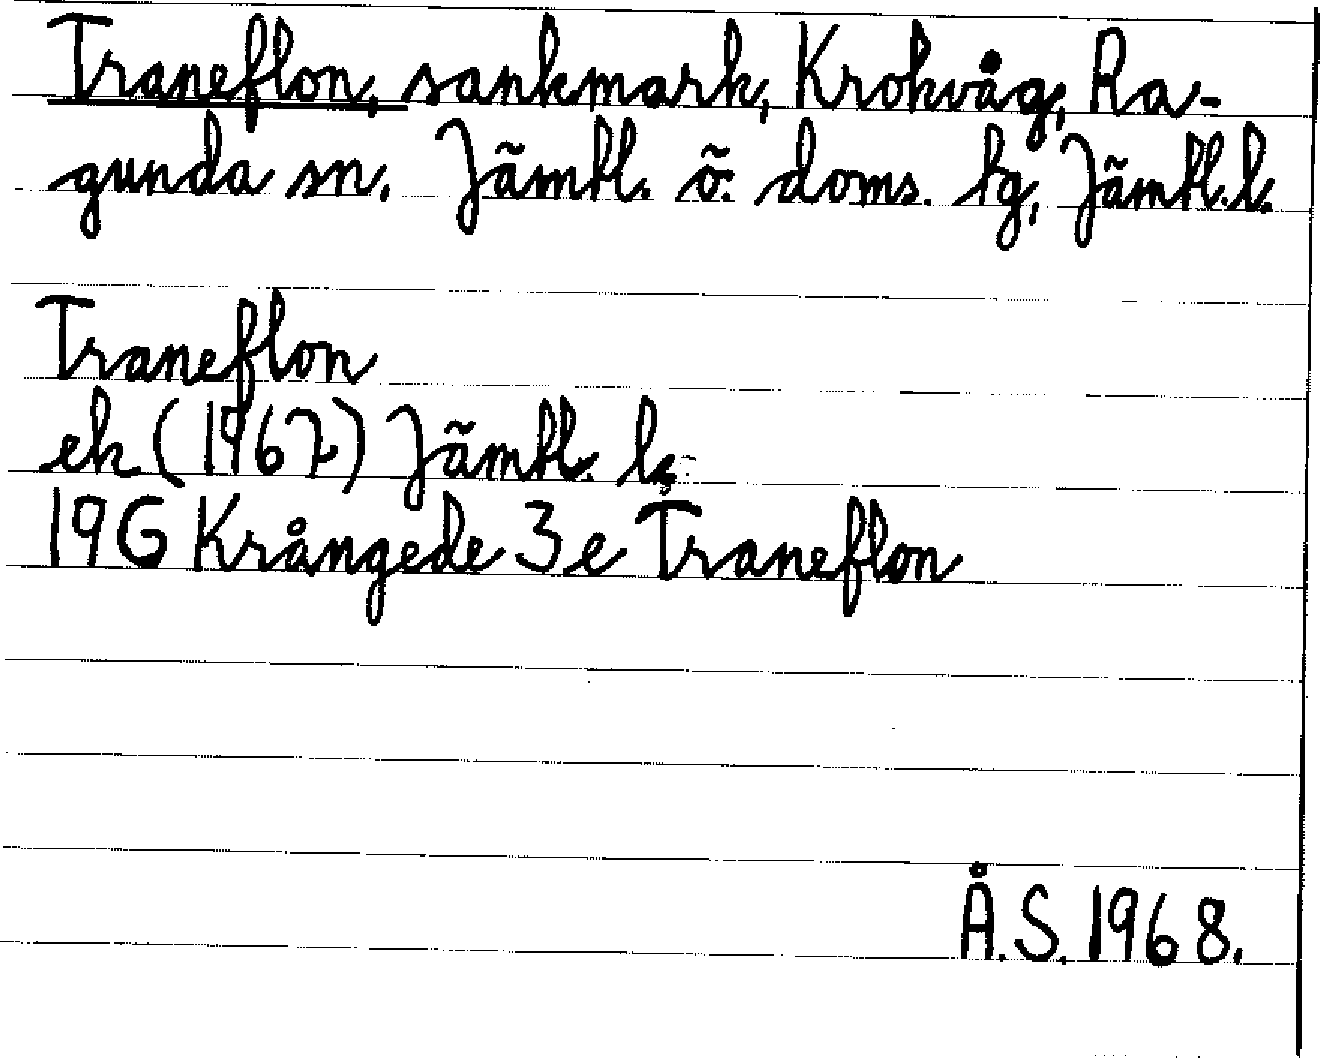 Traneflon, sankmark, Krokvåg, Ra-
gunda sn. Jämtl. ö. doms. tg, Jämtl. l.
Traneflon
ek (1967) Jämtl. l,
19G Krångede 3e Traneflon
Å.S. 1968.